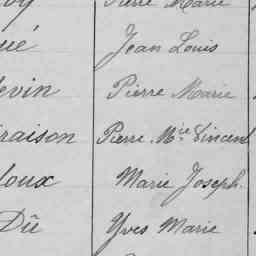 Pierre Marie
ué Jean Louis
evin Pierre Marie
raison Pierre Mie Vincent
loux Marie Joseph
Dû Yves Marie